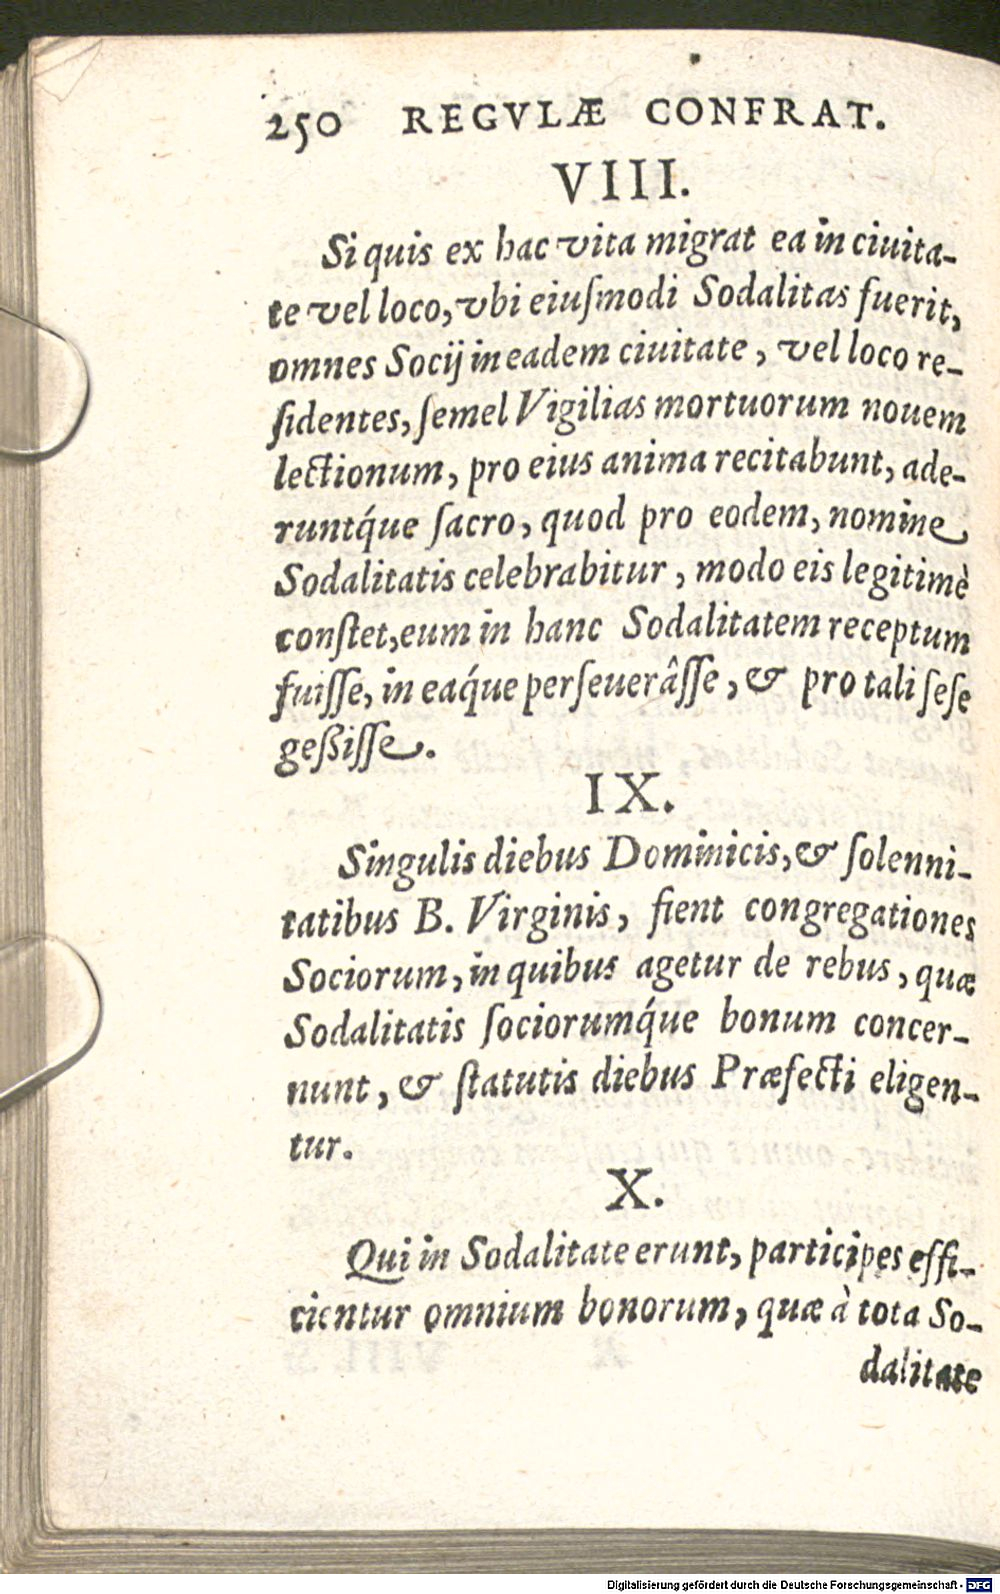 250 REGVLÆ CONFRAT.
VIII.
Si quis ex hac vita migrat ea in ciuita-
te vel loco, vbi eiuſmodi Sodalitas fuerit,
omnes Socij in eadem ciuitate, vel loco re-
ſidentes, ſemel Vigilias mortuorum nouem
lectionum, pro eius anima recitabunt, ade-
runtq́ue ſacro, quod pro eodem, nomine
Sodalitatis celebrabitur, modo eis legitimè
conſtet, eum in hanc Sodalitatem receptum
fuiſſe, in eaq́ue perſeuerâſſe, & pro tali ſeſe
geßiſſe.
IX.
Singulis diebus Dominicis, & ſolenni-
tatibus B. Virginis, fient congregationes
Sociorum, in quibus agetur de rebus, quæ
Sodalitatis ſociorumq́ue bonum concer-
nunt, & ſtatutis diebus Præfecti eligen-
tur.
X.
Qui in Sodalitate erunt, participes effi-
cientur omnium bonorum, quæ à tota So-
dalitate
Digitalisierung gefördert durch die Deutsche Forschungsgemeinschaft - DFG